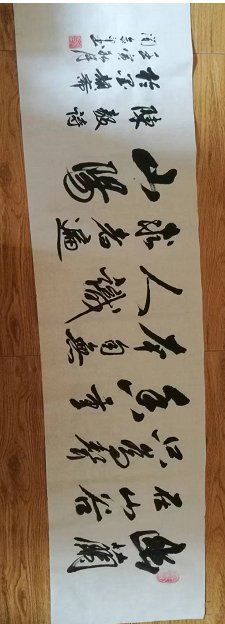 幽蘭
在山谷
只為馨
香重
本自無
人識
求者遍
山隅
陳毅詩